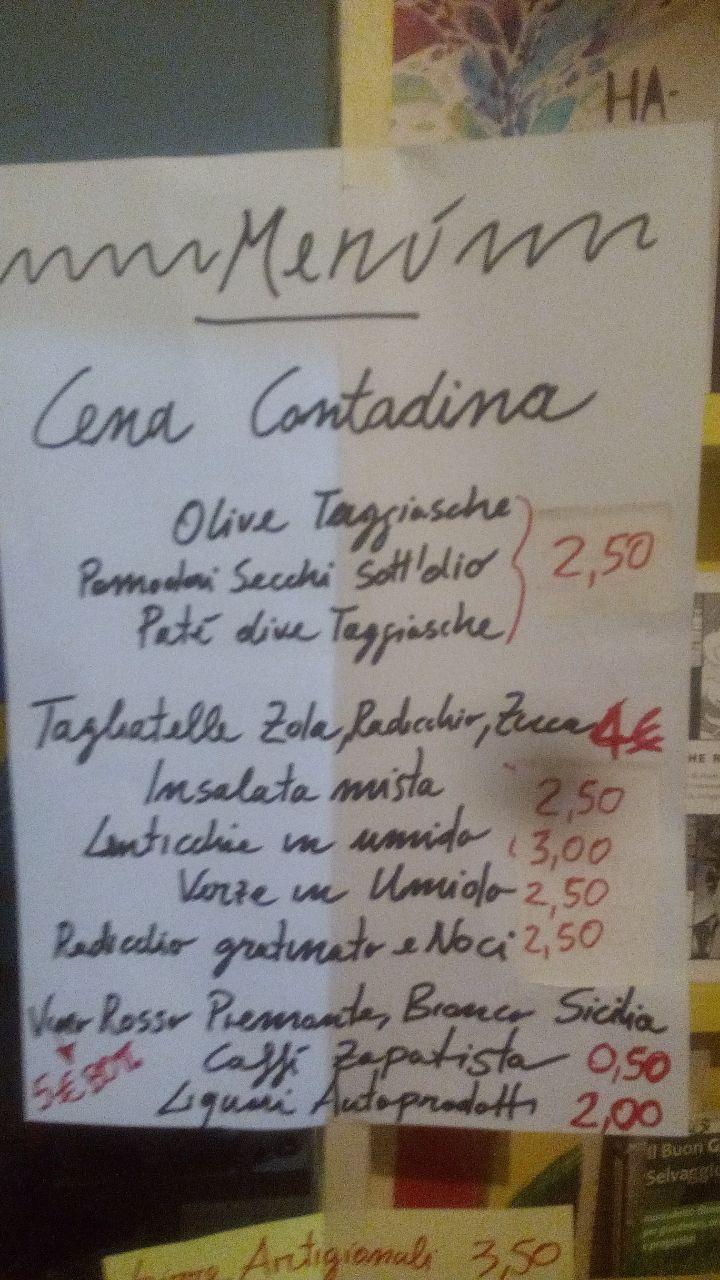 HA-
Menú
Cena Contadina
Olive Taggiasche
Pomodori Secchi Sott'olio
Paté olive Taggiasche
2,50
Tagliatelle Zola, Radicchio, Zucca 4€
Insalata mista 2,50
Lenticchie in umido 3,00
Verze in Umido 2,50
Radicchio gratinato e Noci 2,50
Vino Rosso Piemonte, Bianco Sicilia
5€ BOT.
Caffé Zapatista 0,50
Liquori Autoprodotti 2,00
Il Buon
Selvaggi
Artigianali 3,50